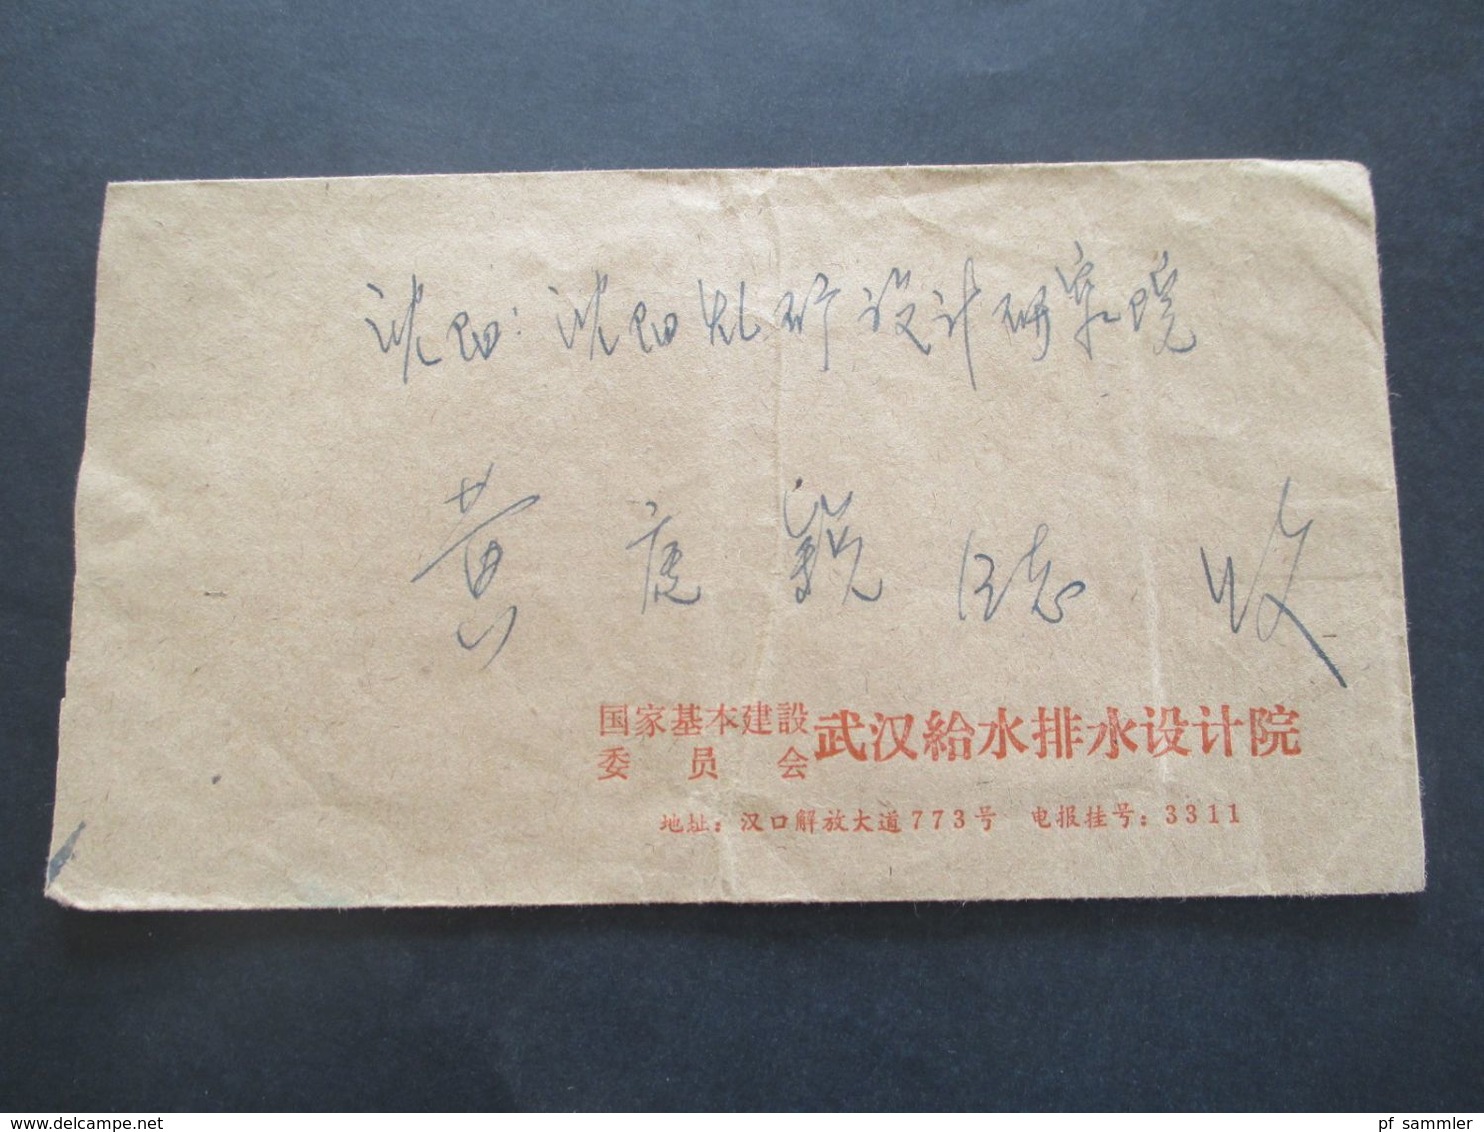 沈阳：沈阳 矿设计研究院
黄 同志 收
国家基本建設
委 员 会 武汉給水排水设计院
地址：汉口解放大道773号 电报挂号：3311
www.delcampe.net
pf_sammler